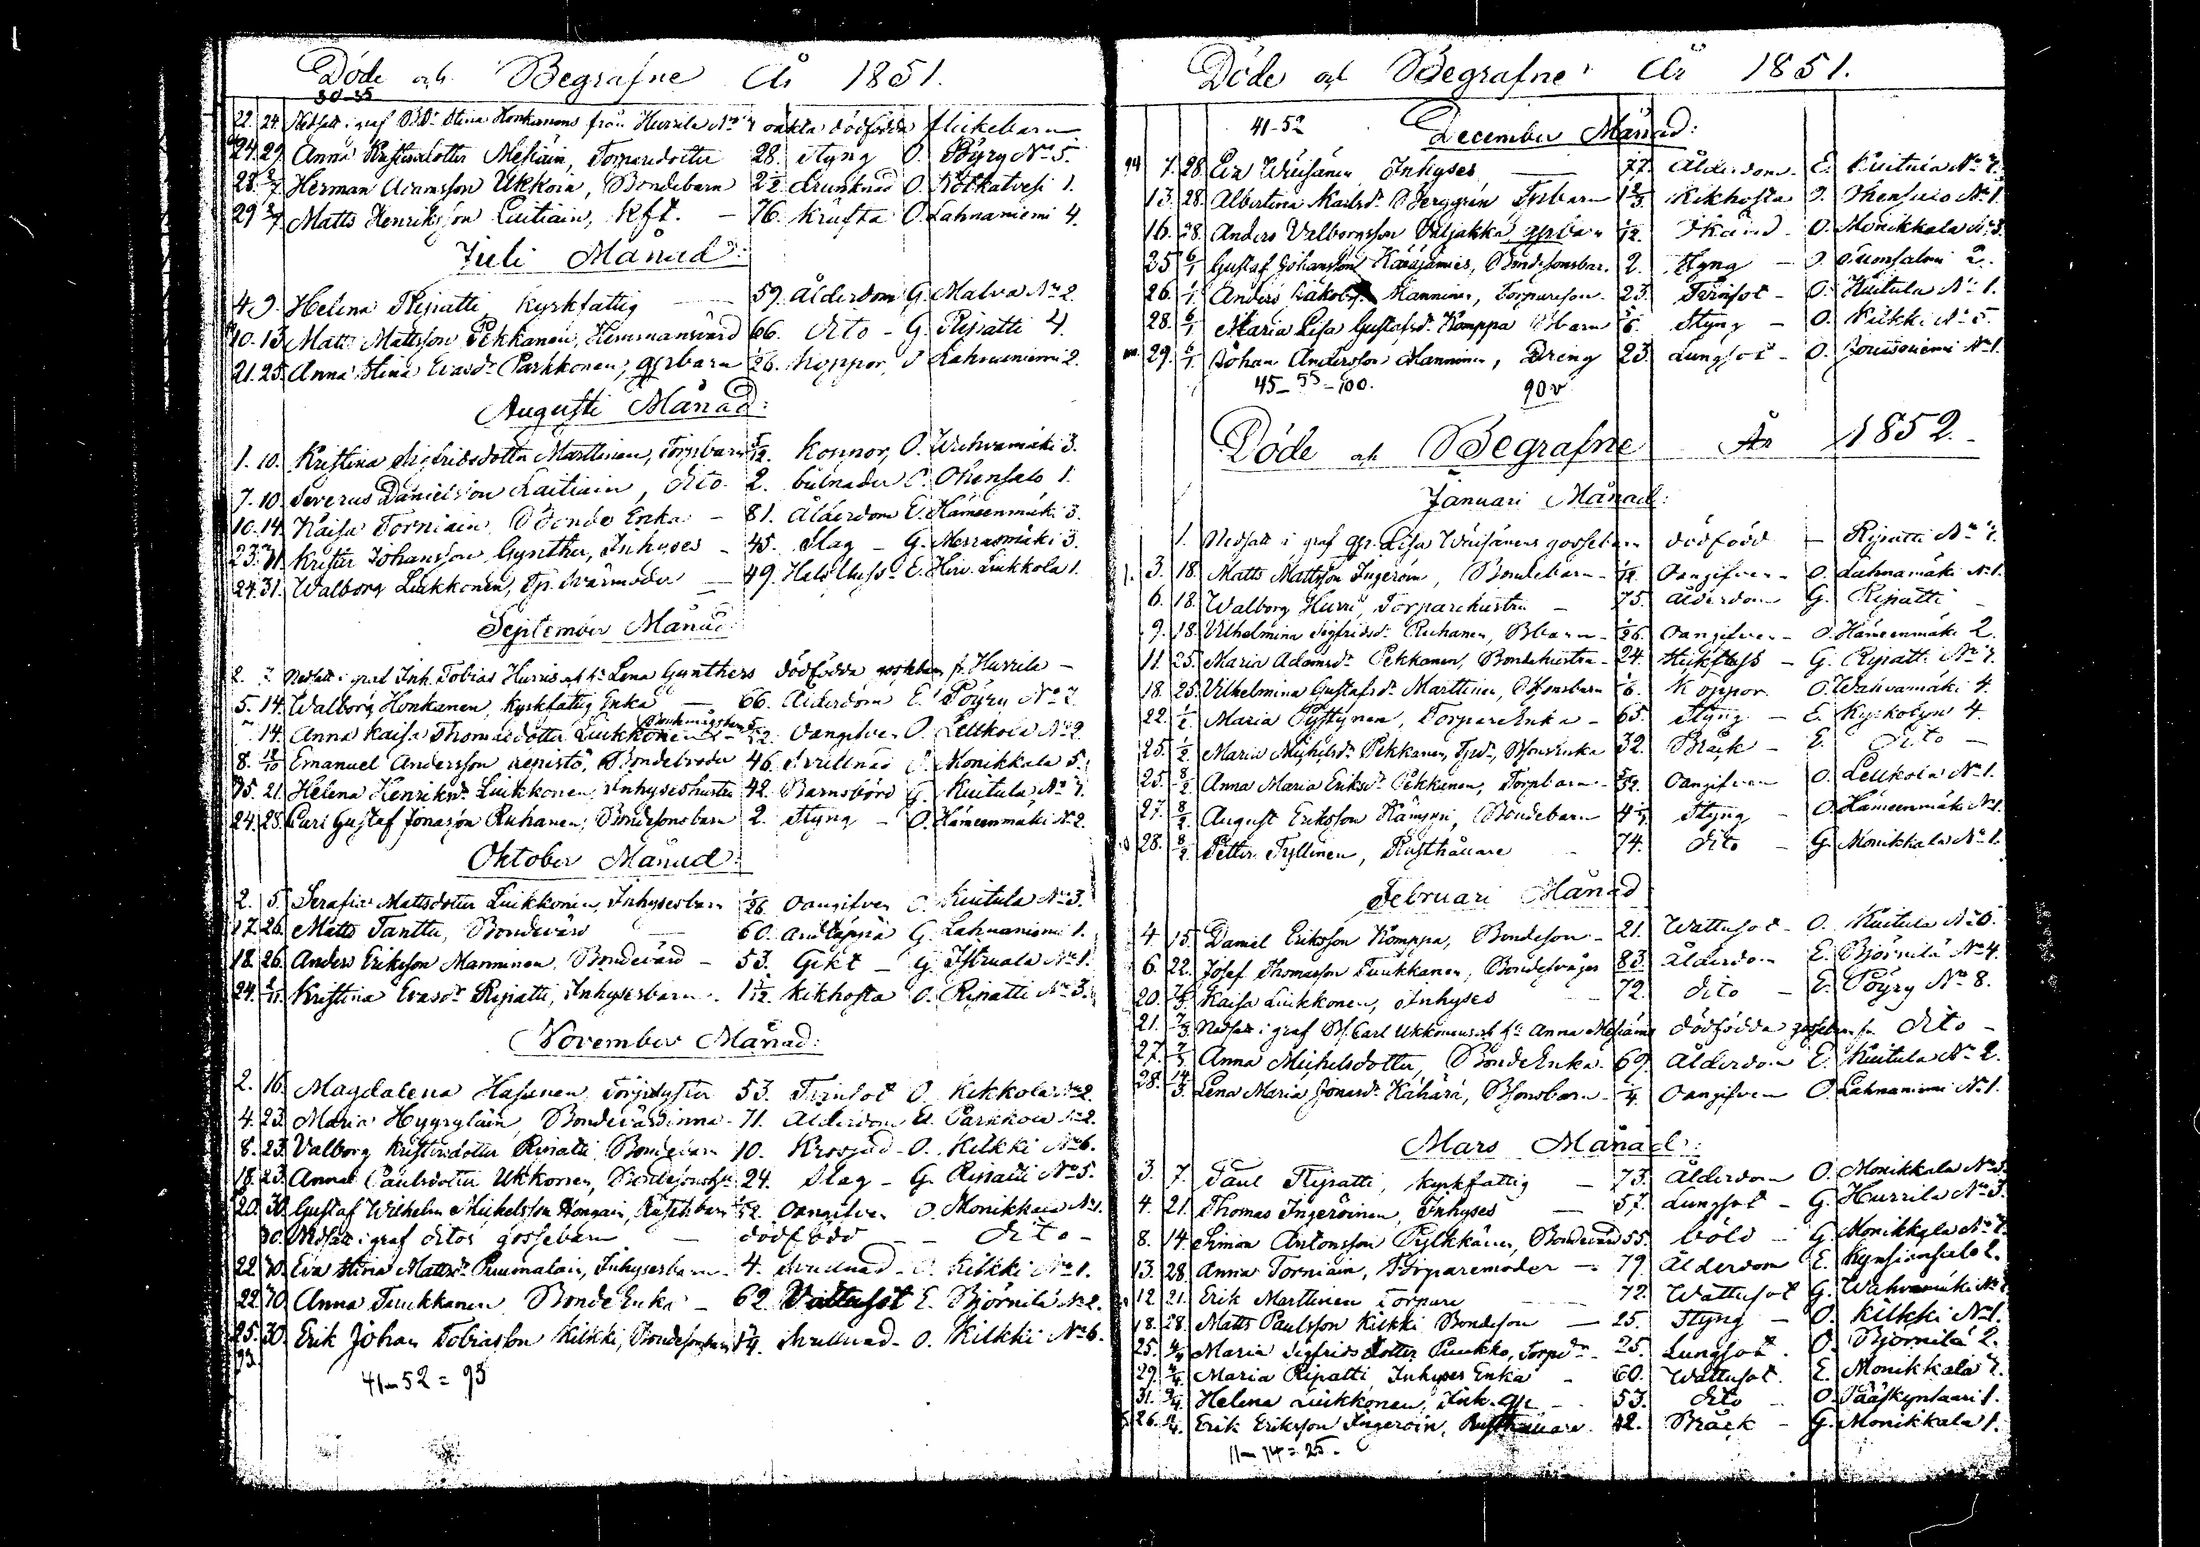 Döde och Begrafne År 1851.
30-35
22. 24. Nedsatt i graf Stina Honkanens från Hurrila No oäkta dödfödda flickebarn
24. 29. Anna Kristersdotter Mesiäin, Torparedotter 28. Styng O. Pöyry No 5.
28. 2/7 Herman Adamsson Ukkoin, Bondebarn 2 1/2 drunknad O. Kotkatvesi 1.
29 2/7 Matts Henriksson Laitiain, Kft. - 76. Kräfta O. Lahnaniemi 4.
Juli Månad:
4. 9. Helena Ripatti, Kyrkfattig 59. Ålderdom G. Malva No 2.
10. 13. Matts Mattsson Pekkanen, Hemmansvärd 66. dito - G. Ripatti 4.
21. 25. Anna Stina Evasdr Parkkonen, qprbarn 1/26. Koppor, O Lahnaniemi 2.
Augusti Månad:
1. 10. Kristina Sigfridsdotter Marttinen, Torpbarn 5/12. Koppor, O. Wahvamäki 3.
7. 10. Severus Danielsson Laitiain, dito 2. bulnader O. Ohensalo 1.
10. 14. Kaisa Torniain Bonde Enka - 81. Ålderdom E. Hämeenmäki 3.
23. 31. Krister Johansson Gynther, Inhyses - 45. Slag - G. Merrasmäki 3.
24. 31. Walborg Liukkonen, Tp. Svärmoder - 49. Halsfluss E. Hirv. Liukkola 1.
September Månad
2. 7. Nedsatt i graf Inh. Tobias Hurris och h: Lena Gynthers dödfödda gossebarn fr. Hurrila -
5. 14. Walborg Honkanen, Kyrkfattig Enka 66. Ålderdom E. Pöyry No 2.
" 14. Anna Kaisa Thomasdotter Liukkonen 5/12. oangifven O. Leikola No 2.
8. 12/10 Emanuel Andersson Repistö, Bondebroder 46. drunknad O. Monikkala 5.
15. 21. Helena Henriksdr Liukkonen, Inhyseshustru 42. Barnsbörd G. Kuitula No 7.
24. 28. Carl Gustaf Jonasson Ruhanen, Bondesonsbarn 2. Styng - O. Hämeenmäki No 2.
Oktober Månad:
2. 5. Serafia Mattsdotter Liukkonen, Inhysesbarn 1/26 oangifven O. Kuitula No 3.
17. 26. Matts Tanttu, Bondevärd 60. andtäppa G. Lahnaniemi 1.
18. 26. Anders Eriksson Manninen, Bondevärd - 53. Gikt - G. Istruala No 1.
24. 2/11. Kristina Evasdr Ripatti, Inhysesbarn. 1 1/12 Kikhosta O. Ripatti No 3.
November Månad:
2. 16. Magdalena Hasanen Torpsyster 53. Trånsot O. Kekkola No 2.
4. 23. Maria Hyyryläin, Bondevärdinna 71. Ålderdom E. Parkkola No 2.
8. 23. Valborg Kristersdotter Ripatti Bondebarn 10. Krossad O. Kilkki No 6.
18. 23. Anna Paulsdotter Ukkonen, Bondesonshu 24. Slag - G. Ripatti No 5.
20. 30. Gustaf Wilhelm Mickelsson Rongain, Rusthbarn 1/52. oangifven O. Monikkala No 1.
30. Nedsatt i graf ditos gossebarn - dödfödd - dito -
22. 30. Eva Stina Mattsdr Puumalain, Inhysesbarn 4. drunknad O. Kilkki No 1.
22 30 Anna Tuukkanen Bonde Enka - 62. Vattusot E. Björnilä No 2.
25. 30. Erik Johan Tobiasson Kilkki, Bondesonsbarn drunknad - O. Kilkki No 6.
93.
41-52 = 93
Döde och Begrafne År 1851.
41-52 December Månad:
94 7. 28. Eva Wäisänen Inhyses 77. Ålderdom - E. Kuitula No 7.
13. 28. Albertina Karlsdr Berggren Tpsbarn 1 2/3. Kikhosta O. Ohensalo No 1.
16. 28. Anders Valborgsson Valjakka qprbarn 1/12. Okänd - O. Monikkala No 3.
25 6/1 Gustaf Johansson Käräjämies, Bondesonsbar. 2. Styng - O Tuonsalmi 2.
26. 1/1. Anders Jakobs. Manninen, Torpareson. 23. Trånsot - O. Kuitula No 1.
28. 6/1 Maria Lisa Gustafsdr Komppa Bbarn 5/6. Styng - O. Kilkki No 5.
29. 6/1. Johan Andersson Manninen, Dräng 23. Lungsot - O. Jouisoniemi No 1.
45-55-100. 90 v
Döde och Begrafne År 1852.
Januari Månad:
1. Nedsatt i graf qpr. Lisa Wäisänens gossebarn dödfödd - Ripatti No 7.
1. 3. 18. Matts Mattsson Ingeröin, Bondebarn - 1/12. Oangifven - O. Lahnamäki No 1.
6. 18. Walborg Hurri, Torparehustru - 75. Ålderdom G. Ripatti -
9. 18. Vilhelmina Sigfridsdr Ruhanen, Bbarn - 1/26. Oangifven - O. Hämeenmäki 2.
11. 25. Maria Adamsdr Pekkanen, Bondehustru - 24. Hukfluss - G. Ripatti No 7.
18. 25. Vilhelmina Gustafsdr Marttinen, Bsonsbarn 1/6. Koppor. O. Wahvamäki 4.
22. 1/2 Maria Tysttynen, Torpare Enka - 65. Styng - E. Kyrkobyn 4.
25. 1/2 Maria Michelsdr Pekkanen, Bsonsenka 32. Bråck - E. dito -
25. 8/2 Anna Maria Eriksdr Pekkanen, Torpbarn - oangifven O. Leikola No 1.
27. 8/2. August Eriksson Kämppi, Bondebarn Styng - O. Hämeenmäki No 1.
28. 8/2 Petter Tyllinen, Rusthållare - 74. dito - G. Monikkala No 1.
Februari Månad
4. 15. Daniel Eriksson Komppa, Bondeson - 21. Wattusot - O. Kuitula No 6.
6. 22. Josef Thomasson Tuukkanen, Bondesvåger 83. Ålderdom E. Björnilä No 4.
20. Kaisa Liukkonen, Inhyses - 72. dito - E. Pöyry No 8.
21. 7/3 Nedsatt i graf Bs. Carl Ukkonens och h: Anna Mesiäins dödfödda gossebarn fr. dito -
27. 7/3 Anna Michelsdotter, Bonde Enka 69. Ålderdom E. Kuitula No 2.
28. 14/3. Lena Maria Jonasdr Kähärä, Bsonsbarn - 1/4. oangifven O. Lahnaniemi No 1.
Mars Månad:
3. 7. Paul Ripatti, Kyrkfattig - 73. Ålderdom O. Monikkala No 3.
4. 21. Thomas Ingeröinen, Inhyses - 57. Lungsot - G. Hurrila No 3.
8. 14. Simon Antonsson Pylkkänen, Bondevärd 55. böld - G. Monikkala No 7.
13. 28. Anna Torniain, Torparemoder - 79. Ålderdom E. Kynsiensalo 2.
12 21. Erik Marttinen Torpare - 72. Wattusot G. Wahvamäki No
18. 28. Matts Paulsson Kilkki Bondeson - 25. Styng - O. Kilkki No 1.
25. 4/4 Maria Sigfridsdotter Puukko, Torpdr 25. Lungsot. O. Björnilä 2.
29. 4/4 Maria Ripatti Inhyses Enka - 60. Wattusot. E. Monikkala 7.
31. 9/4 Helena Liukkonen, Inh. qpr - 53. dito O. Pääskynsaari 1.
26. 4/4. Erik Eriksson Ingeröin, Rusthållare. 42. Bråck - G. Monikkala 1.
11-14=25.